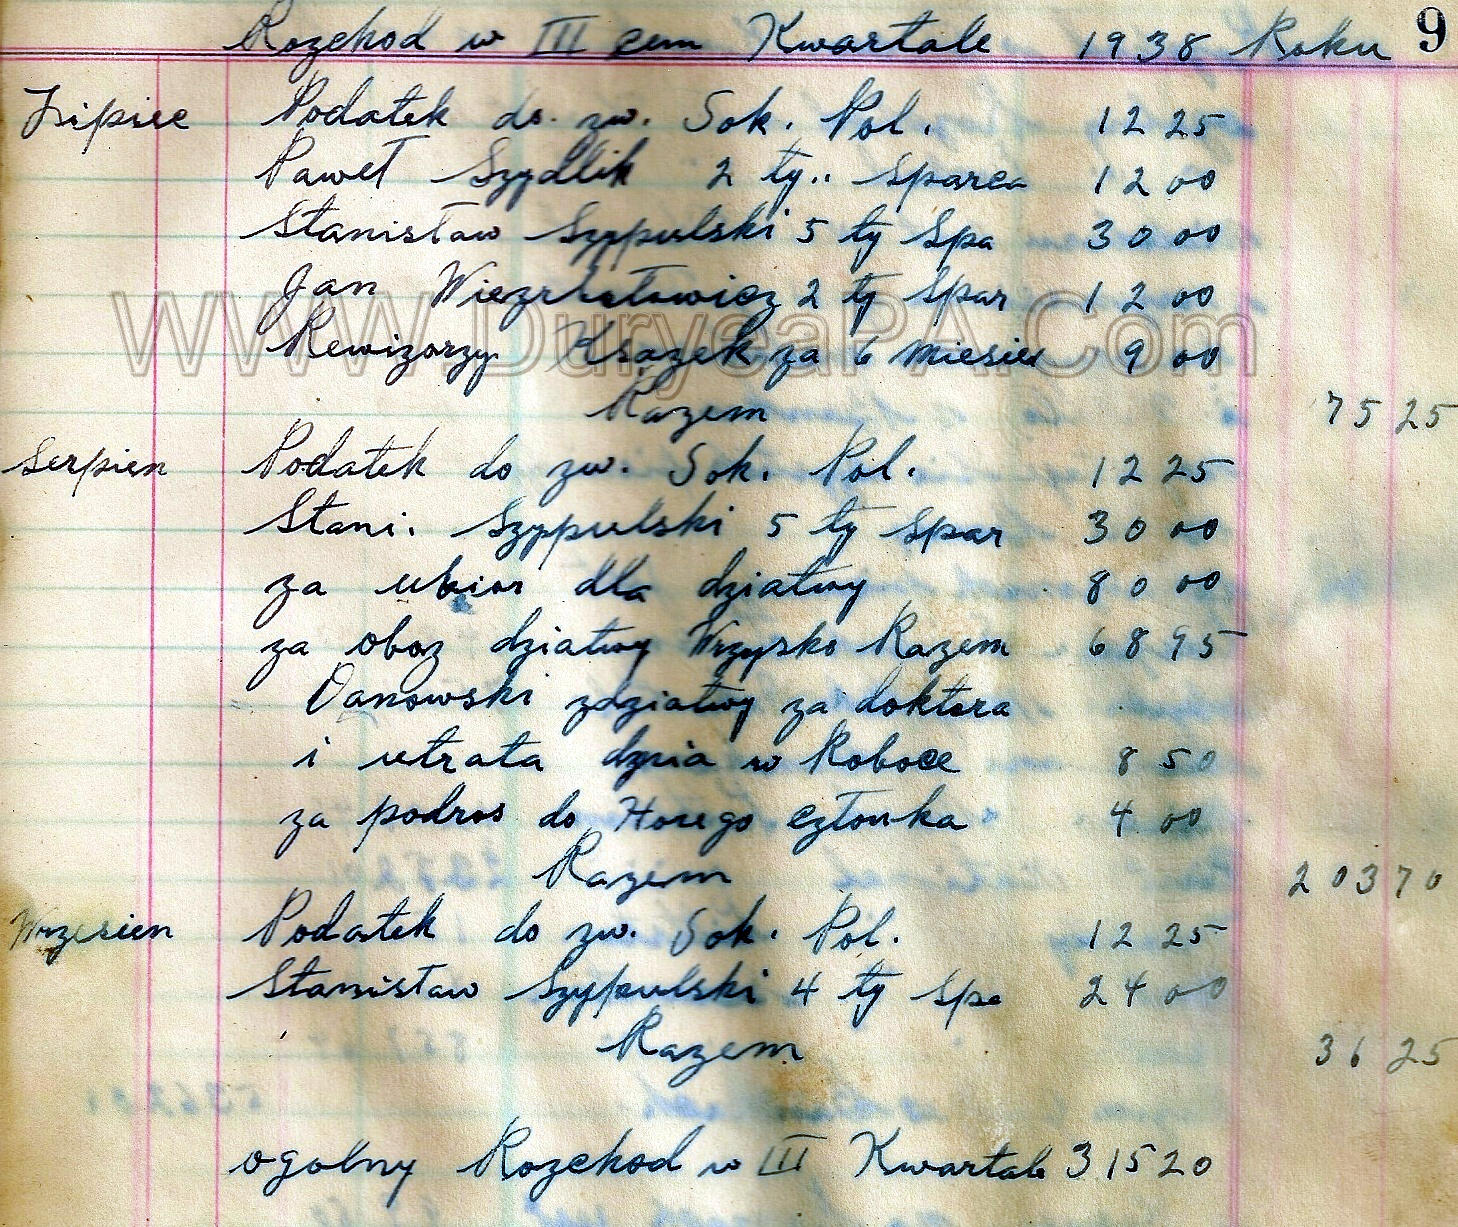 Rozchod w III cem Kwartale 1938 Roku 9
Lipiec Podatek do. zw. Sok. Pol. 12 25
Paweł Szydlik 2 ty.. Sparca 12 00
Stanisław Szypulski 5 ty Spa 30 00
Jan 2 ty Spar 12 00
www.DuryeaPA.Com
Rewizorzy Ksazek za 6 miesiec 9 00
Razem 75 25
Serpien Podatek do zw. Sok. Pol. 12 25
Stani. Szypulski 5 ty Spar 30 00
za ubior dla dziatwy 80 00
za oboz dziatwy Wszysko Razem 68 95
Danowski zdziatwy za doktora
i utrata dnia w Roboce 8 50
za podros do Horego członka 4 00
Razem 203 70
Wrzesien Podatek do zw. Sok. Pol. 12 25
Stanisław Szypulski 4 ty Spa 24 00
Razem 36 25
ogolny Rozchod w III Kwartale 315 20